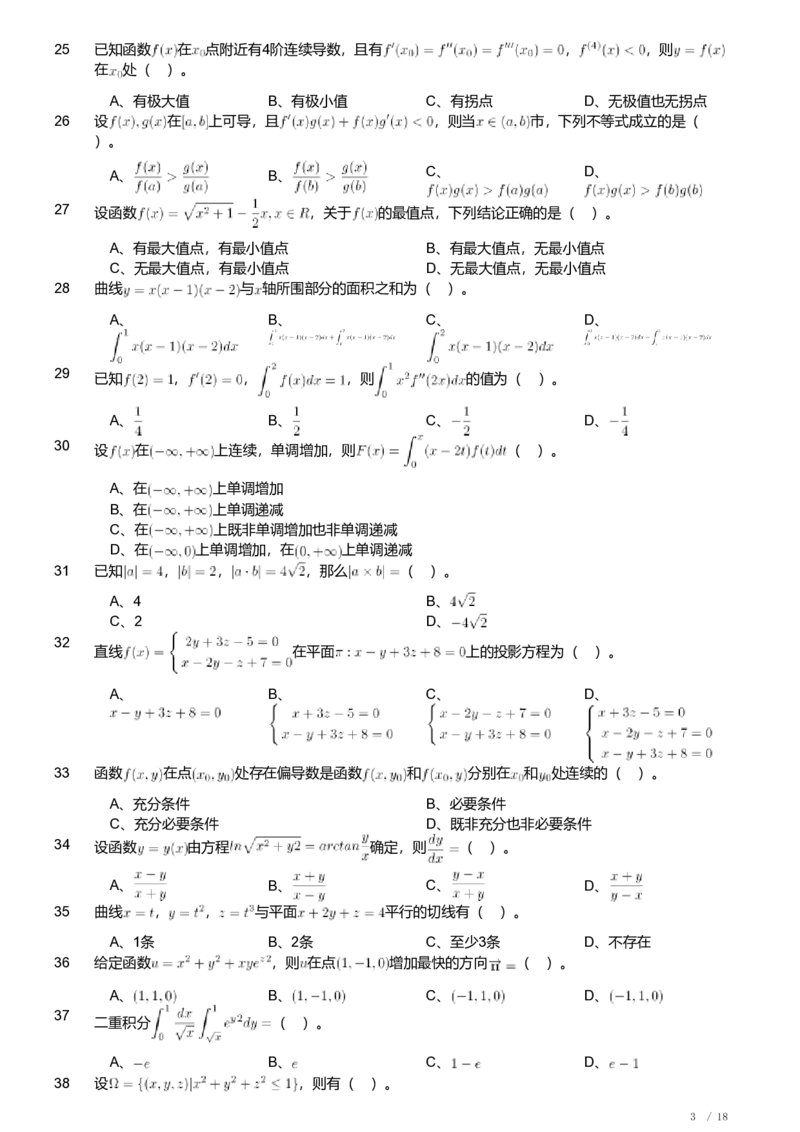 25 已知函数f(x)在x₀点附近有4阶连续导数，且有f′(x₀) = f″(x₀) = f‴(x₀) = 0，f⁽⁴⁾(x) < 0，则y = f(x)
在x₀处（ ）。
A、有极大值 B、有极小值 C、有拐点 D、无极值也无拐点
26 设f(x), g(x)在[a, b]上可导，且f′(x)g(x) + f(x)g′(x) < 0，则当x ∈ (a, b)市，下列不等式成立的是（
）。
A、f(x)/f(a) > g(x)/g(a) B、f(x)/f(b) > g(x)/g(b) C、f(x)g(x) > f(a)g(a) D、f(x)g(x) > f(b)g(b)
27 设函数f(x) = √(x² + 1) − 1/2 x, x ∈ R，关于f(x)的最值点，下列结论正确的是（ ）。
A、有最大值点，有最小值点 B、有最大值点，无最小值点
C、无最大值点，有最小值点 D、无最大值点，无最小值点
28 曲线y = x(x − 1)(x − 2)与x轴所围部分的面积之和为（ ）。
A、∫₀¹ x(x − 1)(x − 2)dx B、∫₀¹ x(x−1)(x−2)dx + ∫₁² x(x−1)(x−2)dx C、∫₀² x(x − 1)(x − 2)dx D、∫₀¹ x(x−1)(x−2)dx − ∫₁² x(x−1)(x−2)dx
29 已知f(2) = 1，f′(2) = 0，∫₀² f(x)dx = 1，则∫₀¹ x²f″(2x)dx的值为（ ）。
A、1/4 B、1/2 C、−1/2 D、−1/4
30 设f(x)在(−∞, +∞)上连续，单调增加，则F(x) = ∫₀ˣ (x − 2t)f(t)dt（ ）。
A、在(−∞, +∞)上单调增加
B、在(−∞, +∞)上单调递减
C、在(−∞, +∞)上既非单调增加也非单调递减
D、在(−∞, 0)上单调增加，在(0, +∞)上单调递减
31 已知|a| = 4，|b| = 2，|a · b| = 4√2，那么|a × b| =（ ）。
A、4 B、4√2
C、2 D、−4√2
32 直线f(x) = { 2y + 3z − 5 = 0
x − 2y − z + 7 = 0 在平面π : x − y + 3z + 8 = 0上的投影方程为（ ）。
A、x − y + 3z + 8 = 0 B、{ x + 3z − 5 = 0 C、{ x − 2y − z + 7 = 0 D、{ x + 3z − 5 = 0
x − y + 3z + 8 = 0 x − y + 3z + 8 = 0 x − 2y − z + 7 = 0
x − y + 3z + 8 = 0
33 函数f(x, y)在点(x₀, y₀)处存在偏导数是函数f(x, y₀)和f(x₀, y)分别在x₀和y₀处连续的（ ）。
A、充分条件 B、必要条件
C、充分必要条件 D、既非充分也非必要条件
34 设函数y = y(x)由方程ln√(x² + y2) = arctan y/x确定，则dy/dx =（ ）。
A、(x − y)/(x + y) B、(x + y)/(x − y) C、(y − x)/(x + y) D、(x + y)/(y − x)
35 曲线x = t，y = t²，z = t³与平面x + 2y + z = 4平行的切线有（ ）。
A、1条 B、2条 C、至少3条 D、不存在
36 给定函数u = x² + y² + xyeᶻ²，则u在点(1, −1, 0)增加最快的方向n⃗ =（ ）。
A、(1, 1, 0) B、(1, −1, 0) C、(−1, 1, 0) D、(−1, 1, 0)
37 二重积分∫₀¹ dx/√x ∫_√x¹ e^y2 dy =（ ）。
A、−e B、e C、1 − e D、e − 1
38 设Ω = {(x, y, z)|x² + y² + z² ≤ 1}，则有（ ）。
3 / 18